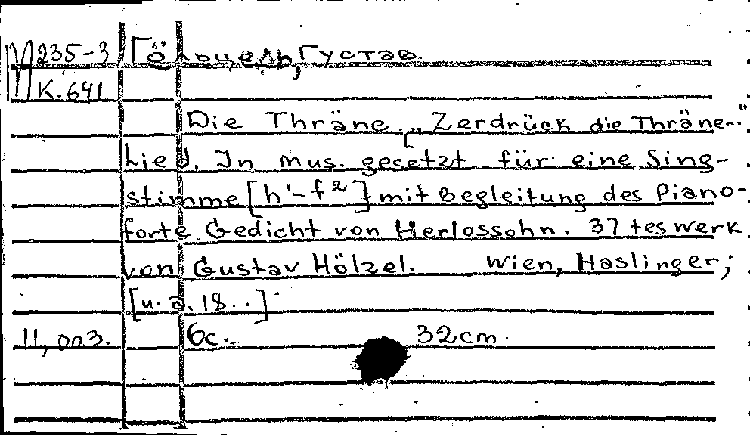 М235-3 Гёльцель, Густав
К.641
Die Thräne. „Zerdrück die Thräne.."
Lied. In mus. gesetzt für eine Sing-
stimme [h'-f²] mit Begleitung des Piano-
forte Gedicht von Herlossohn. 37 tes werk
von Gustav Hölzel. Wien, Haslinger;
[u. a. 18..]
II, опз. 6с. 32cm.